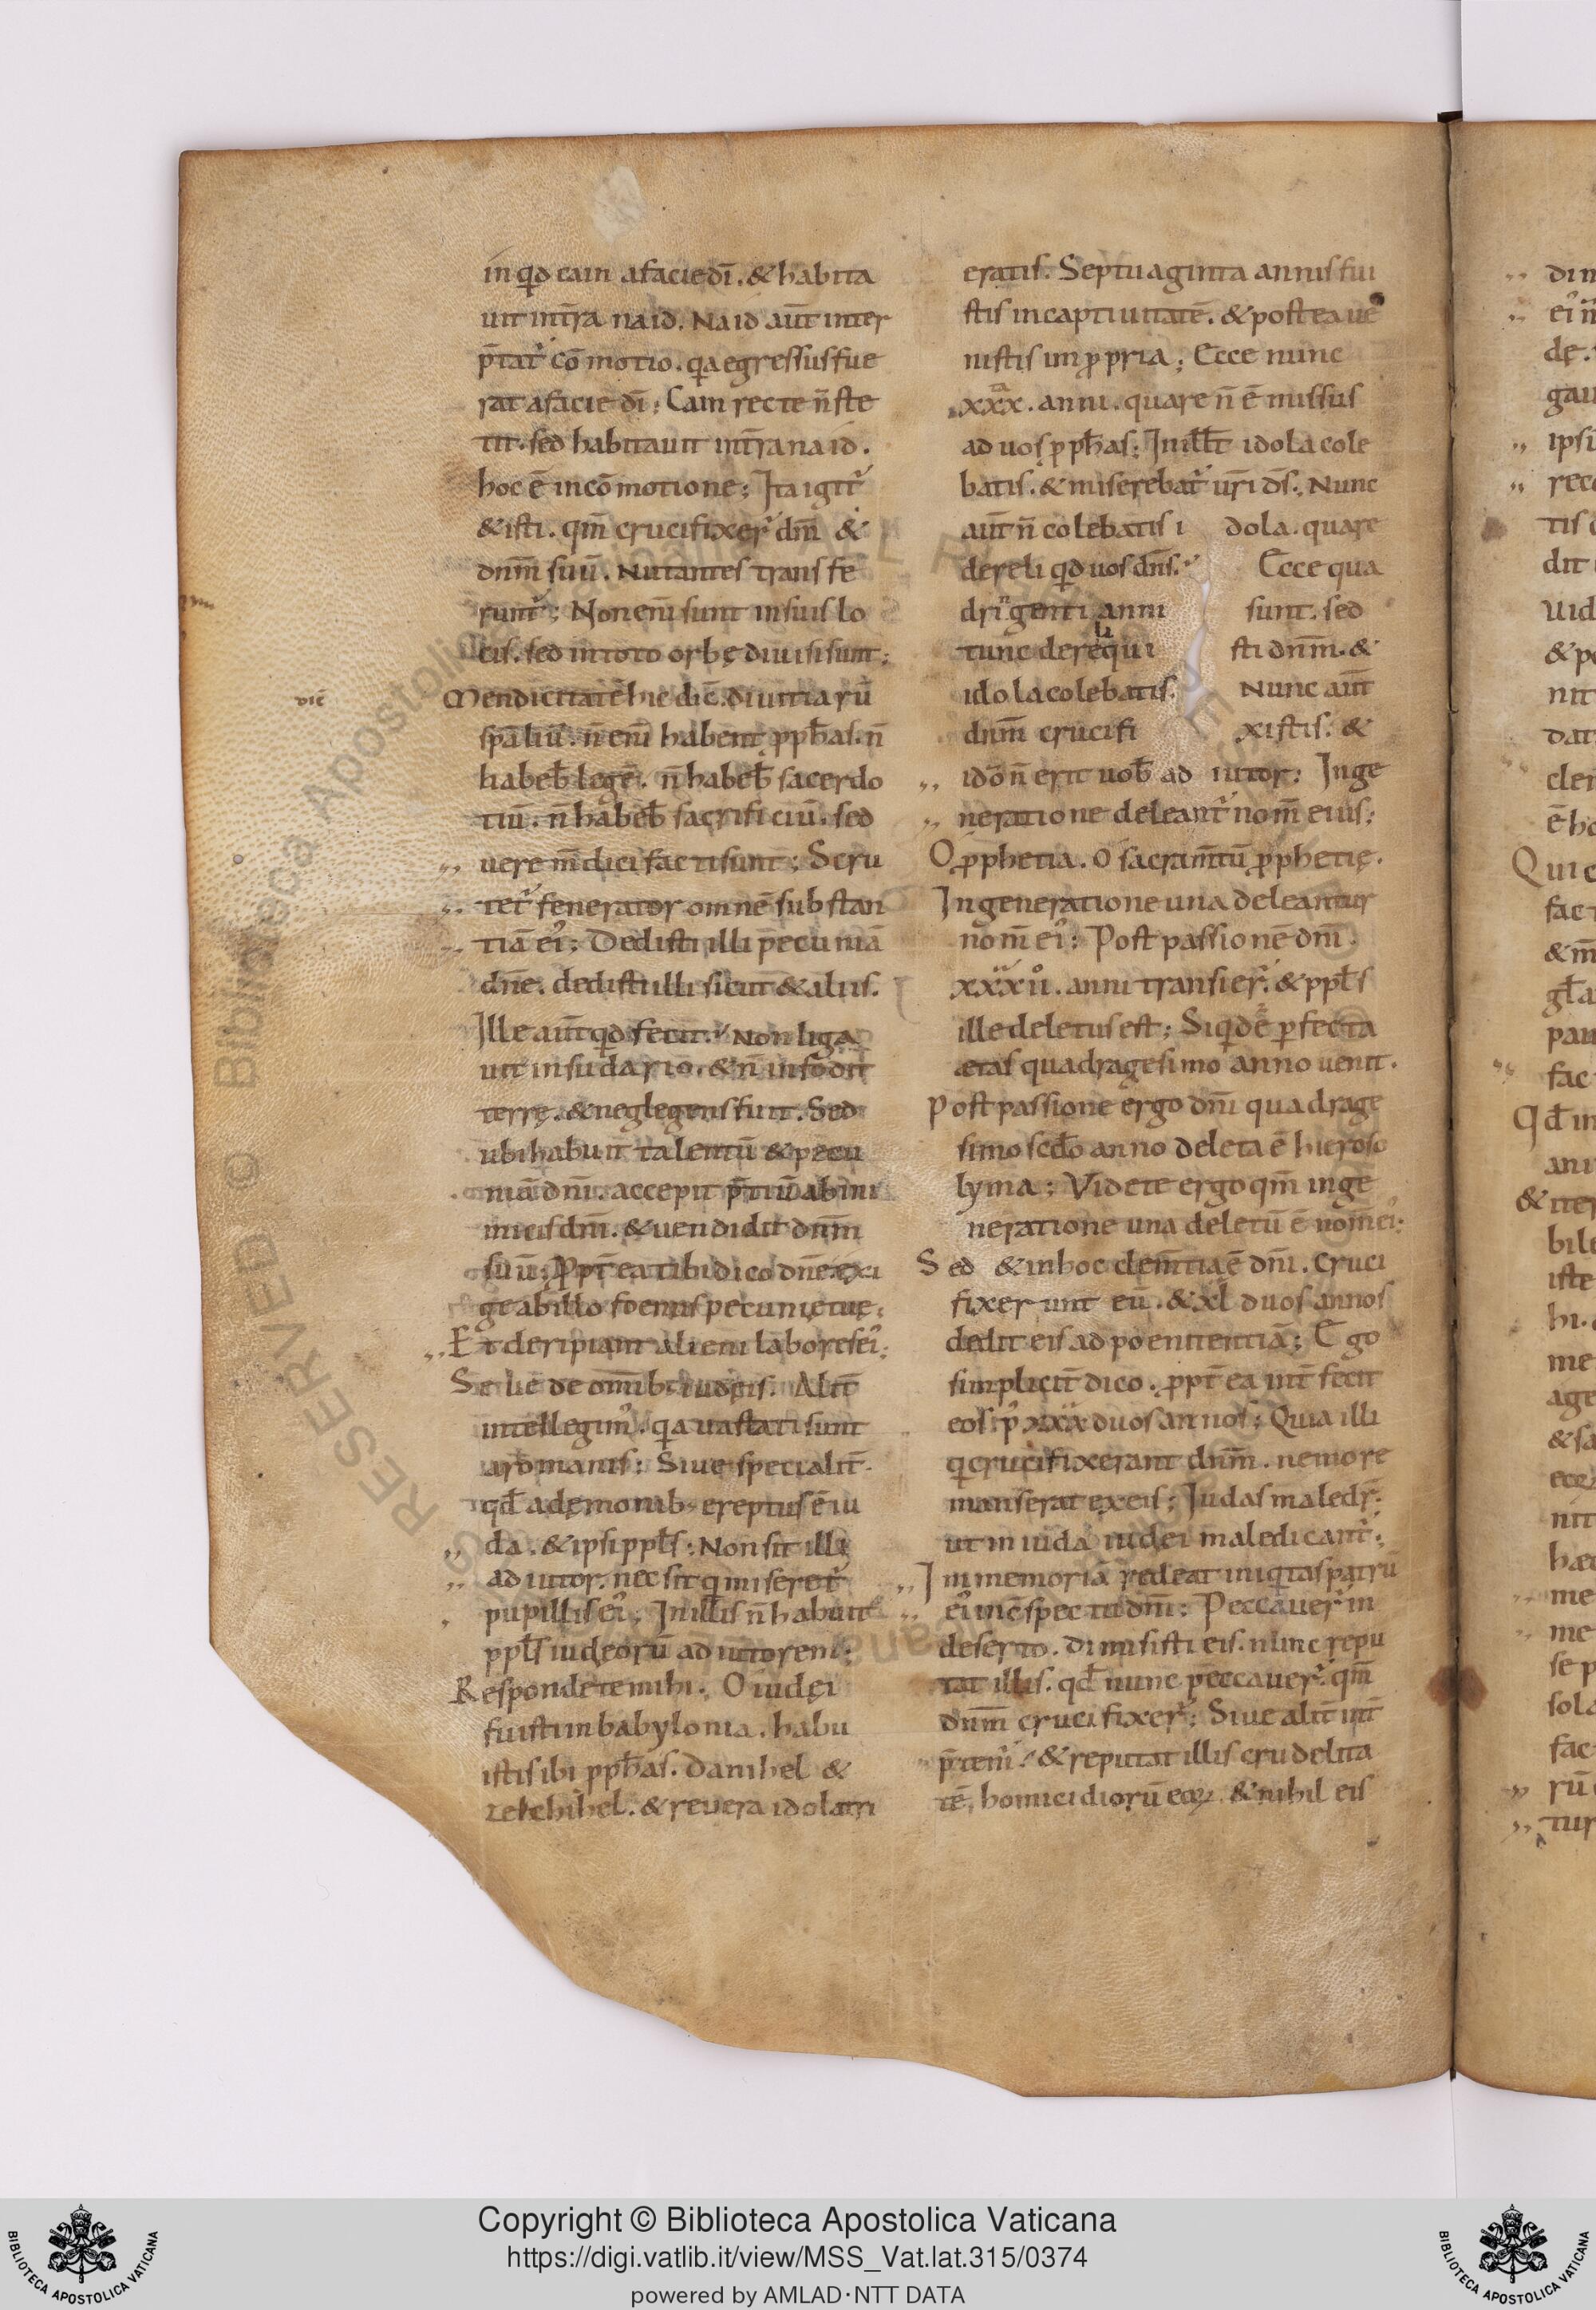 in q̄d cain afacie dī. & habita
uit int̄ra naid. Naid aūt inter
p̄tat᷑ cōmotio. qa egressus fue
rat afacie dī; Cain recte n̄ ste
tit. sed habitauit int̄ra naid.
hoc ē incōmotione; Ita igit᷑
& isti. qm̄ crucifixer᷑ dm̄ &
dnm̄ suū. Nutantes transfe
runt᷑; Non enī sunt insuis lo
cis. sed intoto orbę diuisi sunt;
dic̄
Mendicitatē hic dic̄. diuitiarū
sp̄aliū. n̄ enī habent pph̄as. n̄
habeb̄ legē. n̄ habeb̄ sacerdo
tiū. n̄ habeb̄ sacrificiū. sed
uere m̄dici facti sunt; Scru
tet᷑ fenerator omnē substan
tiā ei᷒; Dedisti illi pecuniā
dn̄e. dedisti illi sicut & aliis.
Ille aūt qd fecit. Non liga
uit insudario. & n̄ infodit
terrę. & neglegens fuit. Sed
ubi habuit talentū & pecu
niā dnī. accepit p̄tiū abini
micis dnī. & uendidit dnm̄
suū; Propt̄ ea tibi dico dn̄e. exi
ge abillo foenus pecunię tuę;
Et deripiant alieni labores ei᷒;
Se lie de omīb; iudęis. Alit̄
intellegim᷒. qa uastati sunt
aromanis; Siue specialit̄
qd̄ adęmonib; ereptus ē iu
da. & ipsi ppl̄s; Non sit illi
adiutor. nec sit q miseret᷑
pupillis ei᷒; In illis n̄ habuit
ppl̄s iudęorū adiutorem;
Respondete mihi. O iudęi
fuisti inbabylonia. habu
istis ibi pph̄as. Danihel &
zetchihel. & reuera idolatri
eratis. Septuaginta annis fui
stis incaptiuitatē. & postea ue
nistis in ppria; Ecce nunc
.xxx. anni. quare n̄ ē missus
ad uos pph̄as; In ill̄t idola cole
batis. & miserebat᷑ ur̄i ds̄; Nunc
aūt n̄ colebatis idola. quare
dereliqd uos dn̄s. Ecce qua
dri genti anni sunt. sed
tunc derequisti dnm̄. &
idola colebatis. Nunc aūt
dnm̄ crucifixistis. &
idō n̄ erit uob̄ adiutor; Inge
neratione deleant᷑ nom̄ eius;
O pphetia. O sacram̄tū pphetię.
In generatione una deleantur
nom̄ ei᷒; Post passionē dnī
xxxii. anni transier᷑. & ppl̄s
ille deletus est; Siqdē pfecta
ætas quadragesimo anno uenit.
Post passione ergo dnī quadrage
simo scdo anno deleta ē hieroso
lyma; Videte ergo qm̄ inge
neratione una deletū ē nom̄ ei᷒;
Sed & inhoc clem̄tia ē dnī. Cruci
fixerunt eū. & xl duos annos
dedit eis ad poenitentiā; Ego
simplicit̄ dico. ppt̄ ea int̄ fecit
eos p᷒ xxx duos annos; Quia illi
q crucifixerant dnm̄. nemo re
manserat ex eis; Iudas maledr̄;
ut in iuda iudęi maledicant᷑;
In memoriā redeat iniqtas patrū
ei᷒ incspectu dnī; Peccauer᷑ in
deserto. dimisisti eis. nunc repu
tat illis. qd̄ nunc peccauer᷑. qm̄
dnm̄ crucifixer᷑; Siue alit̄ int̄
p̄tem᷒. & reputat illis crudelita
tē, homicidiorū eoꝝ. & nihil eis
Copyright © Biblioteca Apostolica Vaticana
https://digi.vatlib.it/view/MSS_Vat.lat.315/0374
powered by AMLAD·NTT DATA
BIBLIOTECA APOSTOLICA VATICANA
BIBLIOTECA APOSTOLICA VATICANA